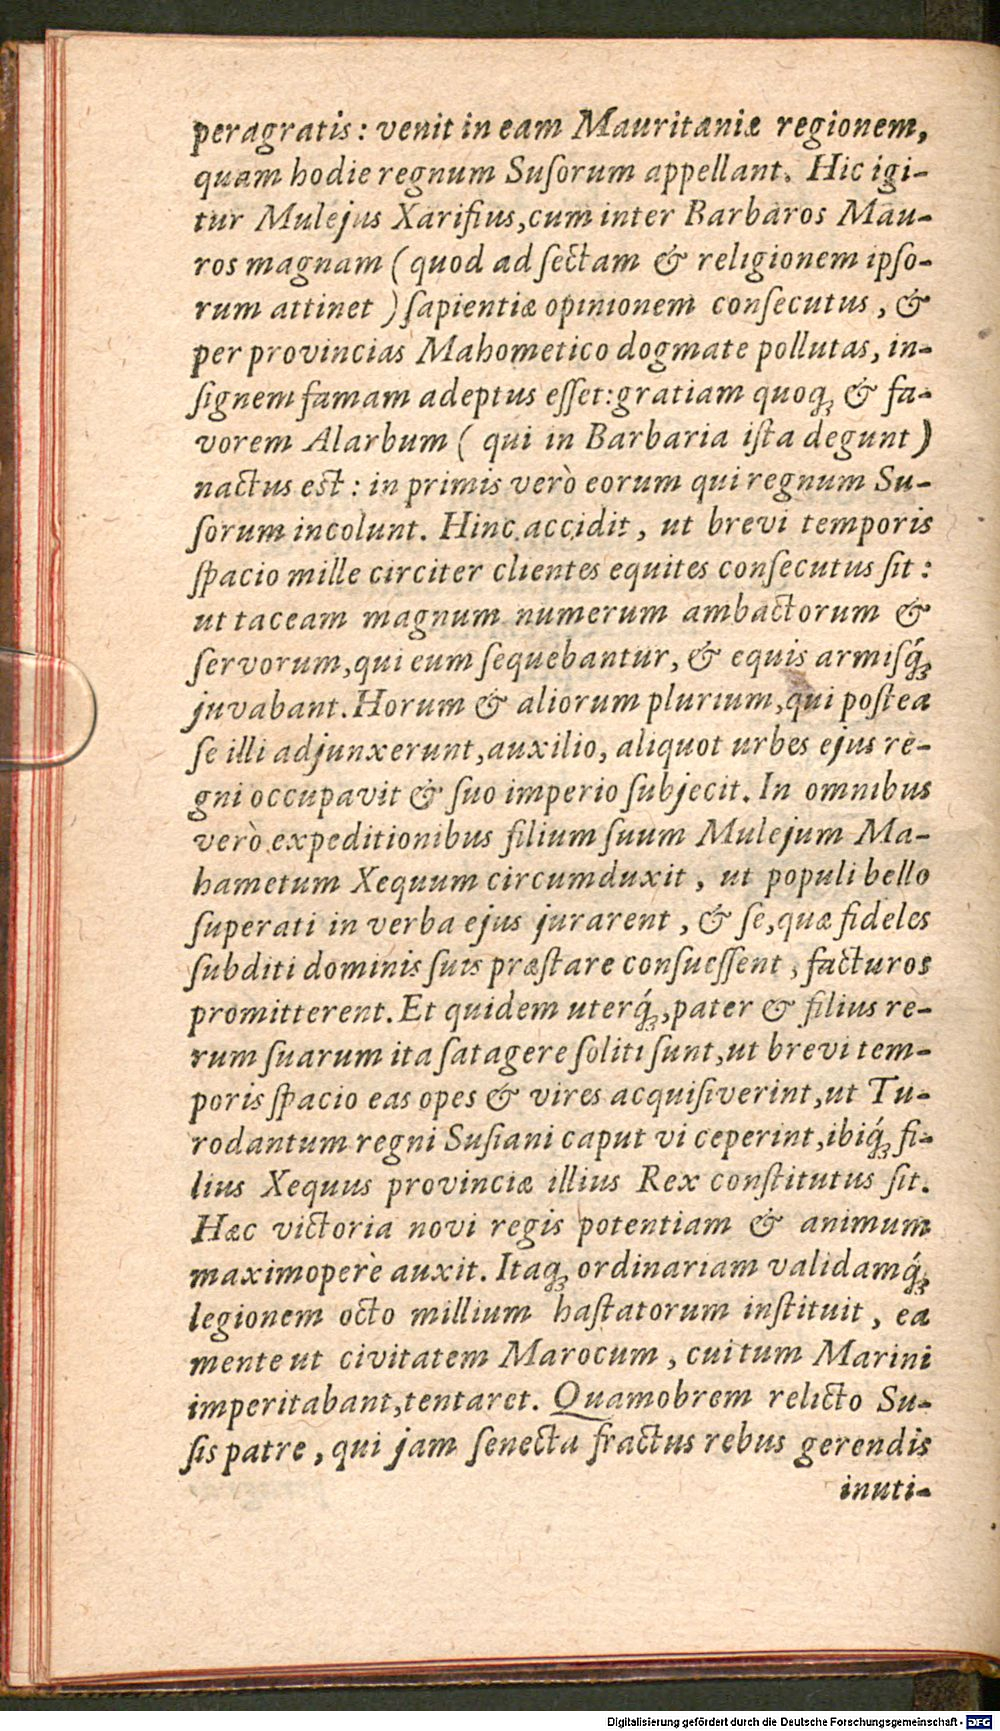 peragratis: venit in eam Mauritaniæ regionem,
quam hodie regnum Suſorum appellant. Hic igi-
tur Mulejus Xarifius, cum inter Barbaros Mau-
ros magnam (quod ad ſectam & religionem ipſo-
rum attinet) ſapientiæ opinionem conſecutus, &
per provincias Mahometico dogmate pollutas, in-
ſignem famam adeptus eſſet: gratiam quoq; & fa-
vorem Alarbum (qui in Barbaria iſta degunt)
nactus est: in primis verò eorum qui regnum Su-
ſorum incolunt. Hinc accidit, ut brevi temporis
ſpacio mille circiter clientes equites conſecutus ſit:
ut taceam magnum numerum ambactorum &
ſervorum, qui eum ſequebantur, & equis armiſq́;
juvabant. Horum & aliorum plurium, qui postea
ſe illi adjunxerunt, auxilio, aliquot urbes ejus re-
gni occupavit & ſuo imperio ſubjecit. In omnibus
verò expeditionibus filium ſuum Mulejum Ma-
hametum Xequum circumduxit, ut populi bello
ſuperati in verba ejus jurarent, & ſe, quæ fideles
ſubditi dominis ſuis præſtare conſueſſent, facturos
promitterent. Et quidem uterq́;, pater & filius re-
rum ſuarum ita ſatagere ſoliti ſunt, ut brevi tem-
poris ſpacio eas opes & vires acquiſiverint, ut Tu-
rodantum regni Suſiani caput vi ceperint, ibiq́; fi-
lius Xequus provinciæ illius Rex conſtitutus ſit.
Hæc victoria novi regis potentiam & animum
maximoperè auxit. Itaq; ordinariam validamq́;
legionem octo millium haſtatorum inſtituit, ea
mente ut civitatem Marocum, cui tum Marini
imperitabant, tentaret. Quamobrem relicto Su-
ſis patre, qui jam ſenecta fractus rebus gerendis
inuti-
Digitalisierung gefördert durch die Deutsche Forschungsgemeinschaft - DFG